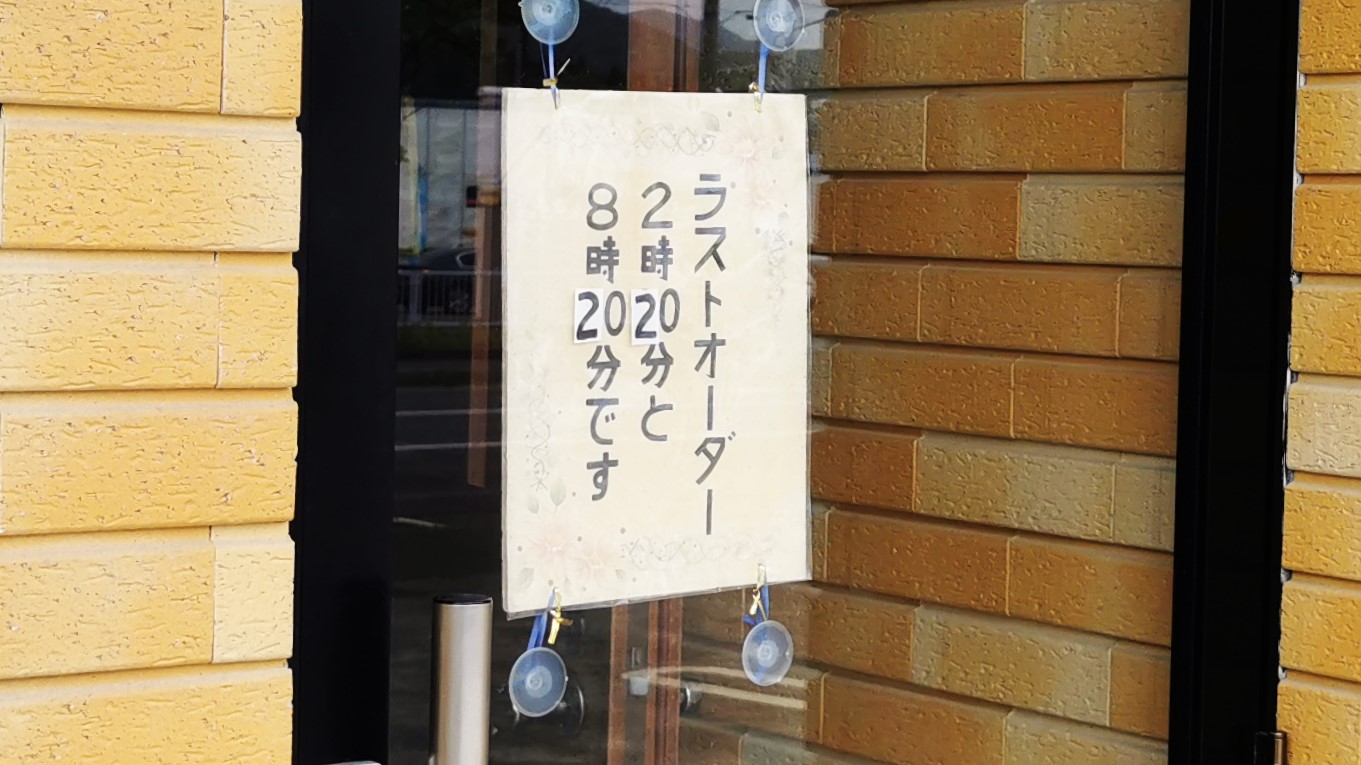 ラストオーダー
2時20分と
8時20分です